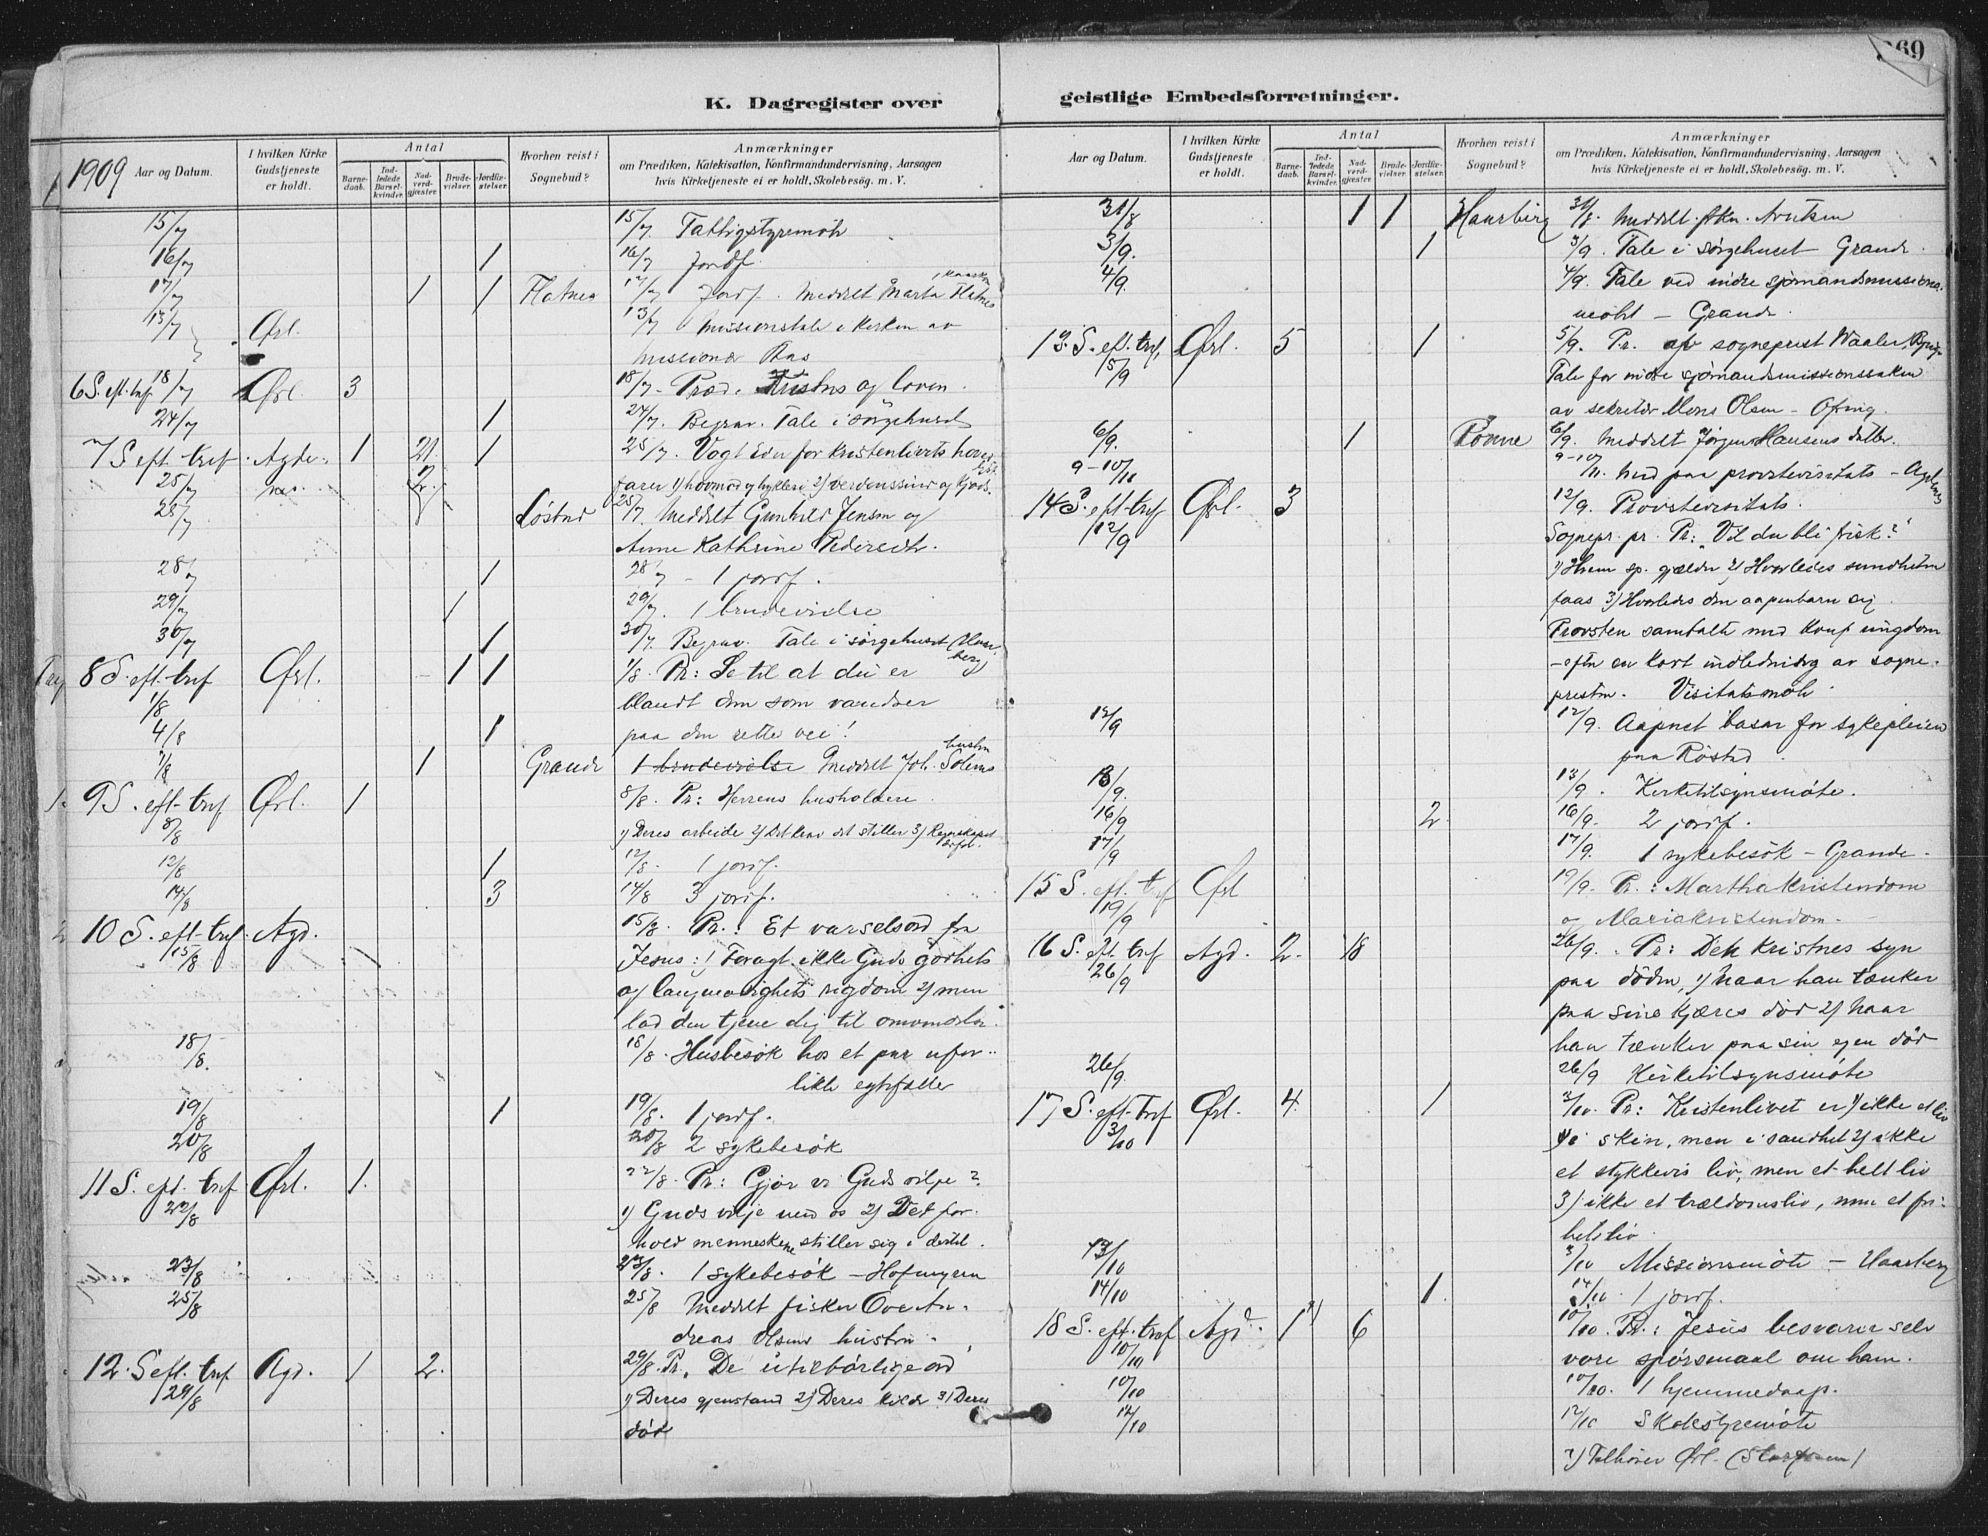 K. Dagregister over
Aar og Datum.
I hvilken Kirke Gudstjeneste er holdt.
Antal
Barnedaab.
Indledede Barselkvinder.
Nadverdgjæster.
Brudevielser.
Jordfæstelser.
Hvorhen reist i Sognebud?
Anmærkninger
om Prædiken, Katekisation, Konfirmandundervisning, Aarsagen
hvis Kirketjeneste ei er holdt, Skolebesøg. m. V.
1909
15/7 15/7 Fattigstyremöte
16/7 1 16/7 Jordf.
17/7 1 1 Flatnes 17/7 Jordf. Meddelt Marta Flatnes
13/7 Ørl. 13/7 Missionstale i kirken av
missionær
6 S. eft. tref 18/7 Ørl. 3 18/7. Præd. Kristus og loven.
24/7 1 24/7. Begrav. Tale i sörgehuset
7 S. eft. tref Agdenes 1 21 1 25/7. Vogt eder for kristenlivets
25/7 2 farer 1) hovmod og hykleri 2) verdenssind og
25/7 Löstad 25/7. Meddelt Gunhild Jensen og
Anne Kathrine
28/7 1 28/7 - 1 jordf.
29/7 1 29/7. 1 brudevielse
30/7 1 30/7. Begrav. Tale i sörgehuset
8 S. eft. tref Ørl. 1 1 1/8. Pr: Se til at du er
1/8 blandt dem som vandrer
4/8 1 paa den rette vei!
7/8 1 Grande 1 brudevielse Meddelt Joh. Solems hustru
9 S. eft. tref Ørl. 1 8/8. Pr: Herrens husholdere.
8/8 1) Deres arbeide 2) Det krav det stiller 3) Regnskapet
12/8 1 12/8. 1 jordf.
14/8 3 14/8 3 jordf.
10 S. eft. tref. Agd. 15/8. Pr.: Et varselsord fra
15/8 1 Jesus: 1) Foragt ikke Guds godhets
og langmodighets rigdom 2) men
lad den tjene dig til omvendelse.
18/8. 18/8. Husbesök hos et par ufor-
likte egtefæller
19/8 1 19/8. 1 jordf.
20/8 20/8 2 sykebesök
11 S. eft. tref Ørl. 1. 22/8. Pr: Gjör vi Guds vilje?
22/8 1) Guds vilje med os 2) Det for-
hold menneskene stiller sig i dertil.
23/8 23/8. 1 sykebesök - Hofmyren
25/8 25/8 Meddelt fisker Ove An-
dreas Olsens hustru.
12. S. eft. tref Agd. 1 2. 29/8. Pr. De utilbörlige ord
29/8 1) Deres gjenstand 2) Deres kilde 3) Deres
död
geistlige Embedsforretninger.
69
Aar og Datum.
I hvilken Kirke Gudstjeneste er holdt.
Antal
Barnedaab.
Indledede Barselkvinder.
Nadverdgjæster.
Brudevielser.
Jordfæstelser.
Hvorhen reist i Sognebud?
Anmærkninger
om Prædiken, Katekisation, Konfirmandundervisning, Aarsagen
hvis Kirketjeneste ei er holdt, Skolebesøg. m. V.
31/8 1 1 Haarberg 31/8. Meddelt frkn. Arntsen
3/9. 1 3/9. Tale i sörgehuset Grande.
4/9. 4/9. Tale ved indre sjömandsmissions-
möte - Grande.
13. S. eft. tref. Ørl. 5 1 5/9. Pr. av sogneprest Waaler,
15/9 Tale for indre sjömandsmissionssaken
av sekretær Mons Olsen -
6/9. 1 6/9. Meddelt Jörgen Hansens datter.
9-10/ 9-10/ med paa provstevisitats - Agdenes
14 S. eft. tref Ørl. 3 12/9. Provstevisitats.
12/9 Sognepr. pr. Pr: Vil du bli frisk?
1) Hvem sp. gjælder 2) Hvorledes sundheten
faas 3) Hvorledes den aapenbarer sig.
Provsten samtalte med konf. ungdom
- efter en kort indledning av sogne-
presten. Visitatsmöte.
12/9 12/9. Aapnet basar for sykepleien
paa Röstad.
13/9. 13/9. Kirketilsynsmöte.
16/9 2. 16/9. 2 jordf.
17/9 17/9. 1 sykebesök - Grande.
15 S. eft. tref Ørl 19/9. Pr.: Marthakristendom
19/9 og Mariakristendom.
16 S. eft. tref Agd. 2. 18 26/9. Pr: Den kristnes syn
26/9 paa döden, 1) naar han tænker
paa sine kjæres död 2) naar
han tænker paa sin egen död
26/9. 26/9 Kirketilsynsmöte
17 S. eft. tref Ørl. 4. 1 3/10. Pr: Kristenlivet er 1) ikke et liv
3/10 i skin, men i sandhet 2) ikke
et stykkevis liv, men et helt liv
3) ikke et trældomsliv, men et fri-
hetsliv.
13/10 3/10 Missionsmöte - Haarberg
14/10 1. 14/10. 1 jordf.
18 S. eft. tref Agd. 1 6 10/10. Pr.: Jesus besvarer selv
10/10 vore spörsmaal om ham.
10/10 10/10. 1 hjemmedaap.
12/10 12/10 Skolestyremöte
Tilhörer Ørl.